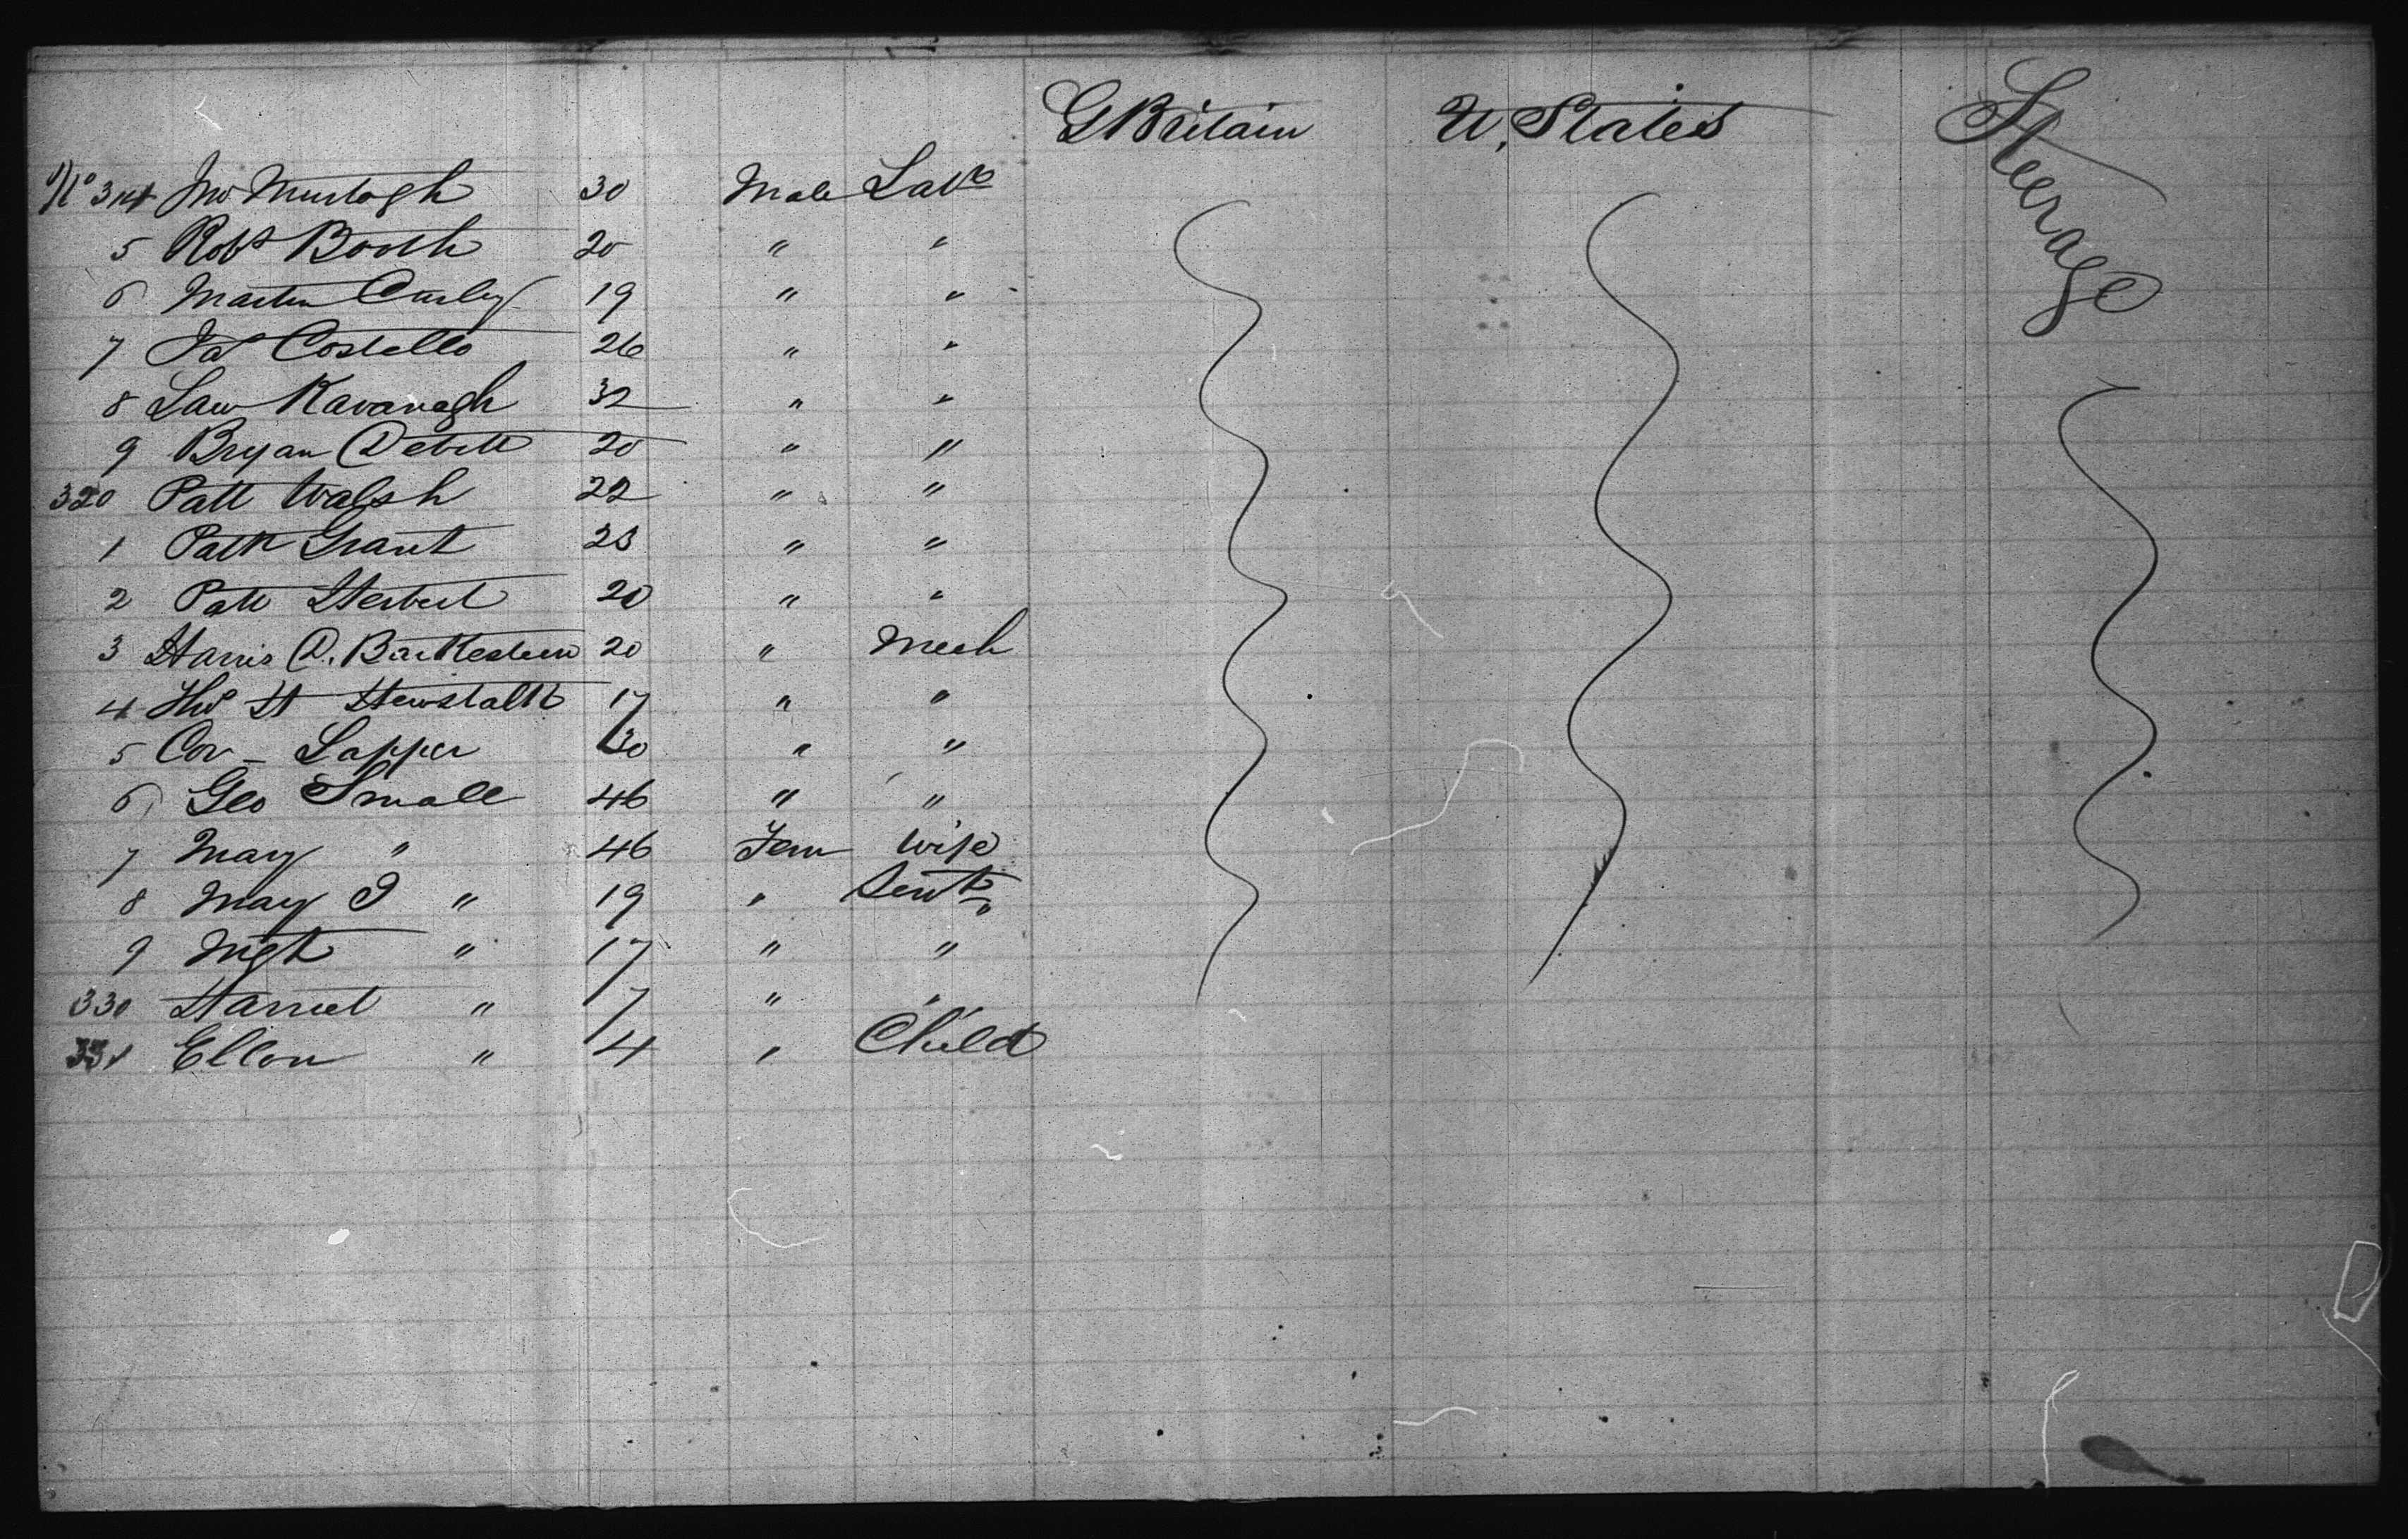 G Britain U, States Steerage
No 314 Jno Murtagh 30 Male Labr
5 Robt Booth 20 " "
6 Martin Curley 19 " "
7 Jas Costello 26 " "
8 Law Kavanagh 32 " "
9 Bryan Debitt 20 " "
320 Patt Walsh 22 " "
1 Patk Grant 23 " "
2 Patt Herbert 20 " "
3 Harris D. 20 " Mech
4 H 17 " "
5 Cor - Lapper 30 " "
6 Geo Small 46 " "
7 Mary " 46 Fem Wife
8 Mary J " 19 " Servt
9 Mgt " 17 " "
330 Harriet " 7 " "
331 Ellen " 4 " Child